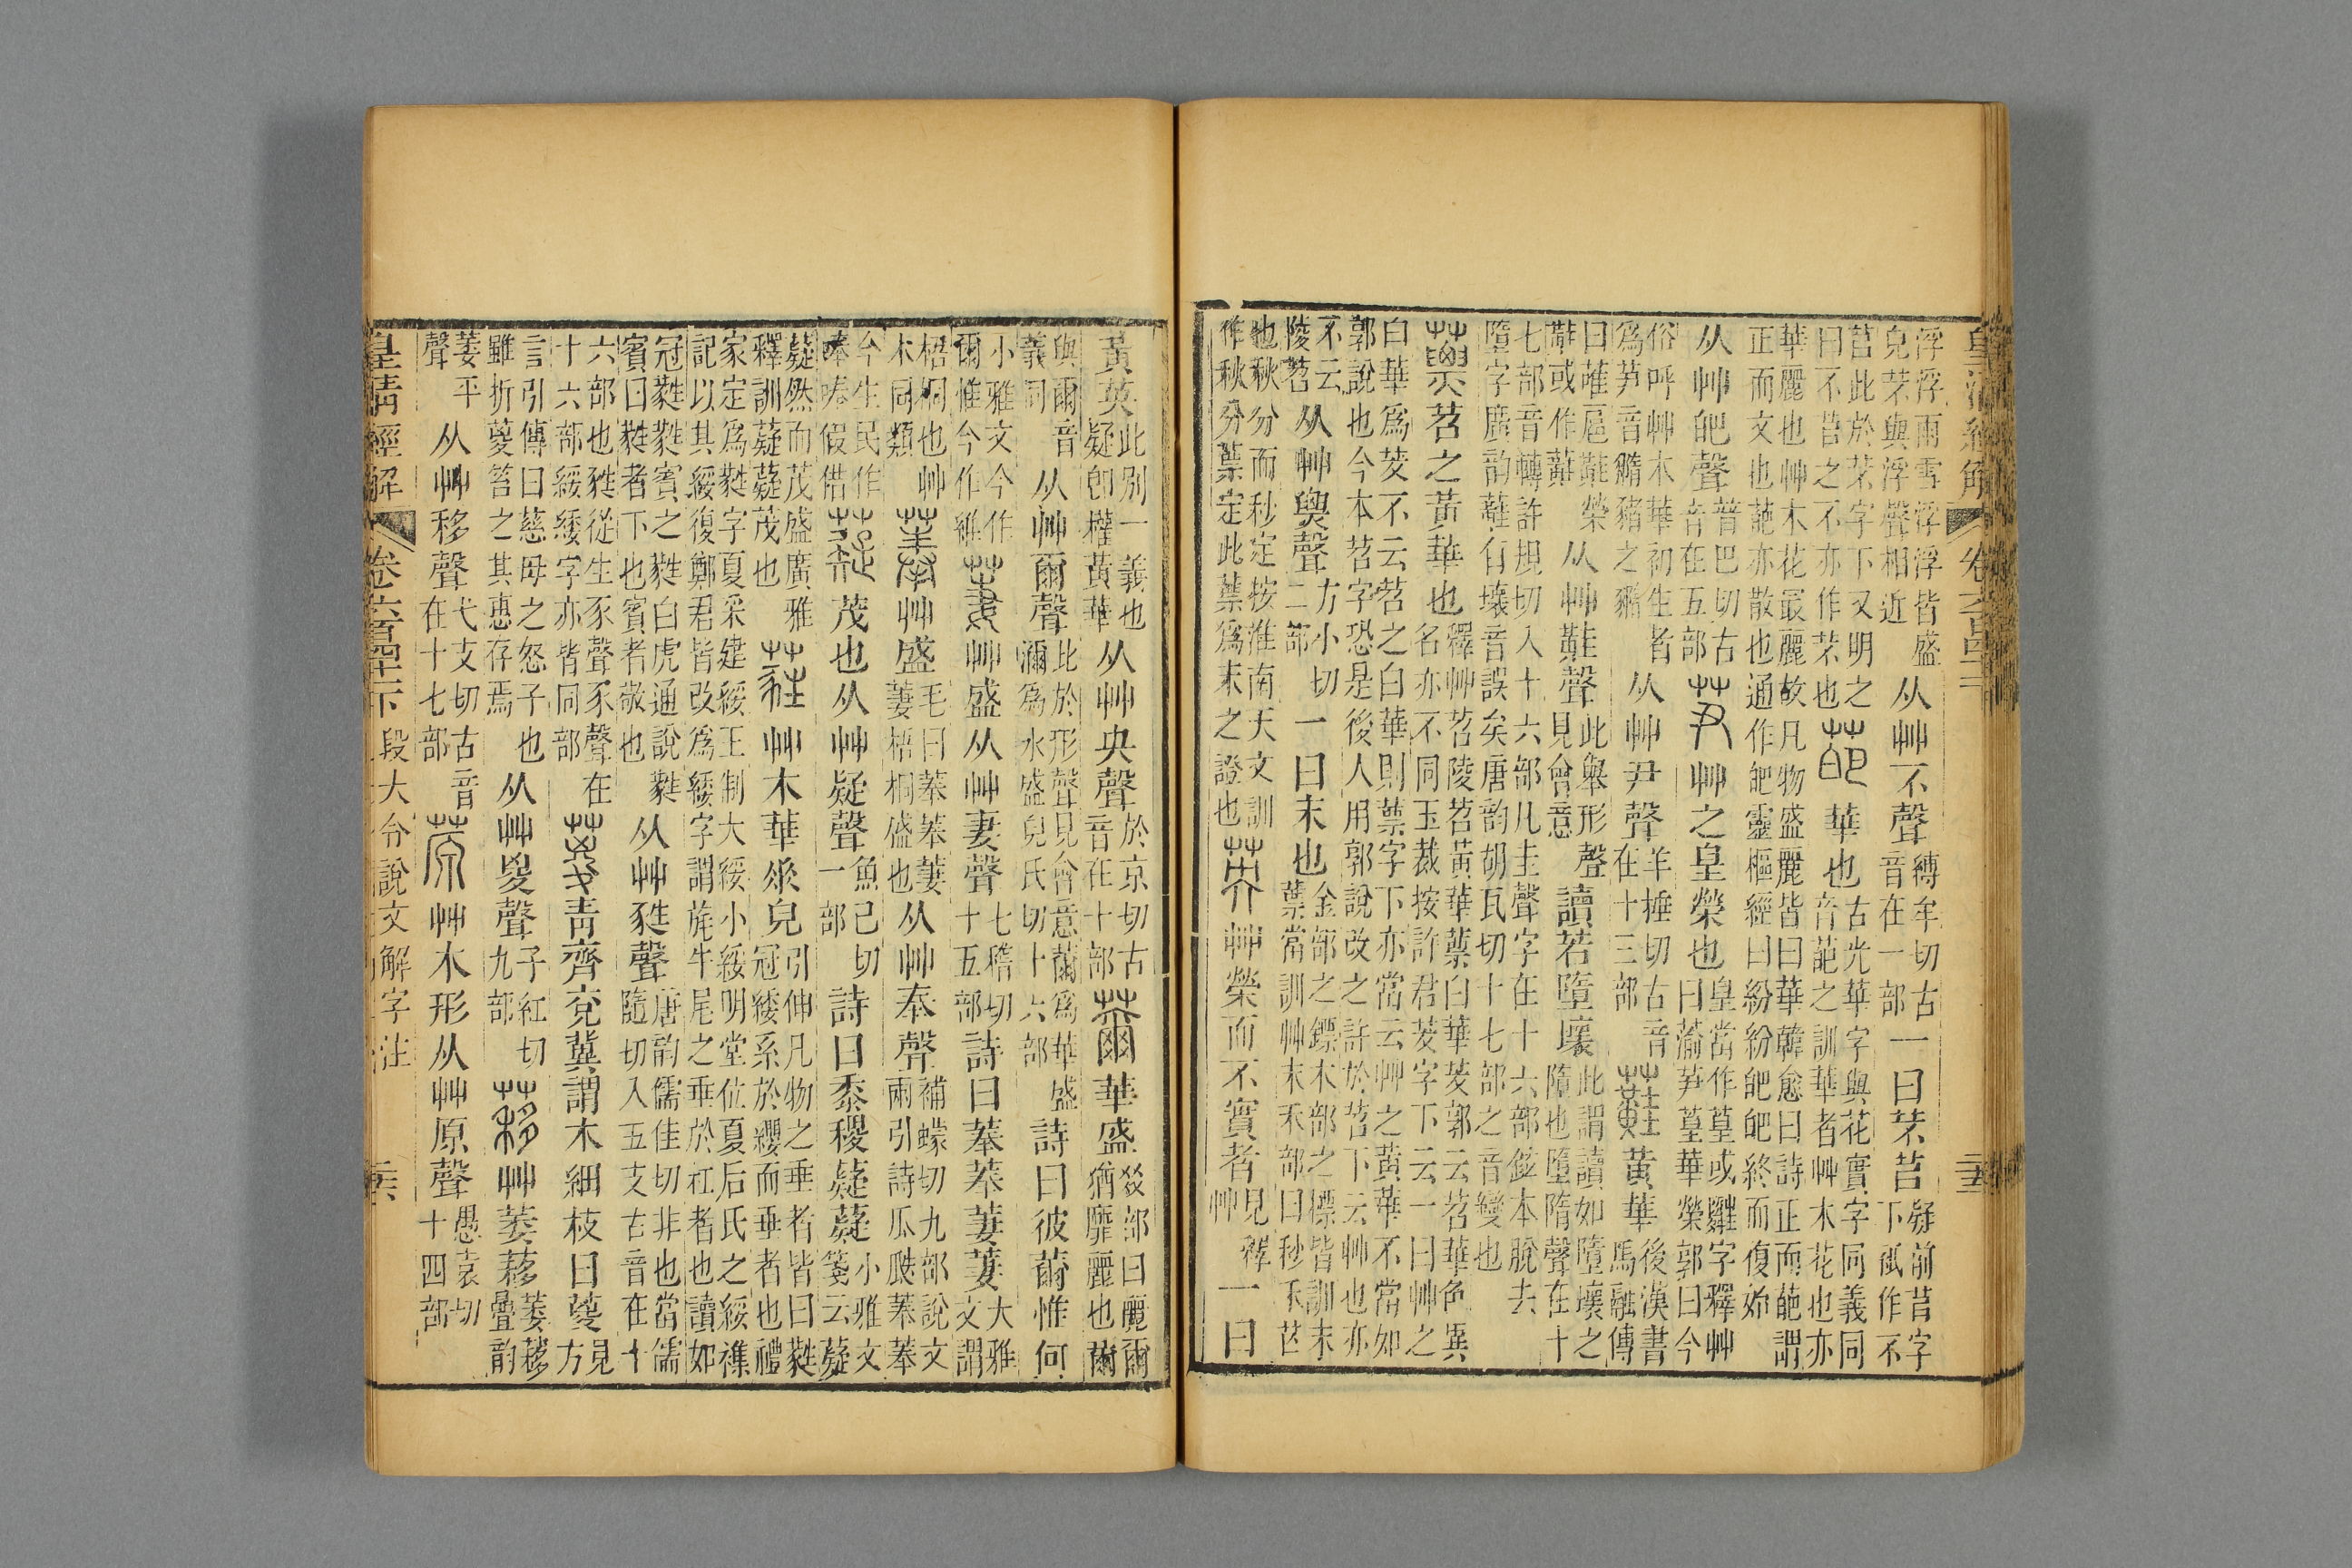 皇清經解 卷六百四十一下
浮浮雨雪浮浮皆盛皃芣與浮聲相近从艸不聲縛牟切古音在一部一曰芣苢疑前苢字下衹作不
苢此於芣字下又明之曰不苢之不亦作芣也葩華也古光華字與花實字同義同音葩之訓華者艸木花也亦
華麗也艸木花最麗故凡物盛麗皆曰華韓愈曰詩正而葩謂正而文也葩亦散也通作皅靈樞經曰紛紛皅皅終而復始
从艸皅聲普巴切古音在五部芛艸之皇榮也皇當作葟或𦿣字釋艸曰蕍芛葟華榮郭曰今
俗呼艸木華初生者爲芛音䝐豬之䝐从艸尹聲羊捶切古音在十三部蘳黃華後漢書馬融傳
曰蘳扈蘳熒蘳或作䕻从艸黊聲此舉形聲見會意讀若墮壞此謂讀如墮壞之隓也墮隋聲在十
七部音轉許規切入十六部凡圭聲字在十六部鉉本脫去隓字廣韵蘳有壞音誤矣唐韵胡瓦切十七部之音變也
蔈苕之黃華也釋艸苕陵苕黃華蔈白華茇郭云苕華色異名亦不同玉裁按許君茇字下云一曰艸之
白華爲茇不云苕之白華則蔈字下亦當云艸之黃華不當如郭說也今本苕字恐是後人用郭說改之許於苕下云艸也亦
不云陵苕从艸㶾聲方小切二部一曰末也金部之鏢木部之標皆訓末蔈當訓艸末禾部曰秒禾芒
也秋分而秒定按淮南天文訓作秋分蔈定此蔈爲末之證也英艸榮而不實者見釋艸一曰
黃英此別一義也疑卽權黃華从艸央聲於京切古音在十部薾華盛㸚部曰麗爾猶靡麗也薾
與爾音義同从艸爾聲此於形聲見會意薾爲華盛濔爲水盛皃氏切十六部詩曰彼薾惟何
小雅文今作爾惟今作維萋艸盛从艸妻聲七稽切十五部詩曰菶菶萋萋大雅文謂
梧桐也艸木同類菶艸盛毛曰菶菶萋萋梧桐盛也从艸奉聲補蠓切九部說文兩引詩瓜瓞菶菶
今生民作唪唪假借薿茂也从艸疑聲魚己切一部詩曰黍稷薿薿小雅文箋云薿
薿然而茂盛廣雅釋訓薿薿茂也蕤艸木華𠂹皃引伸凡物之垂者皆曰蕤冠緌系於纓而垂者也禮
家定爲蕤字夏采建綏王制大綏小綏明堂位夏后氏之綏襍記以其綏復鄭君皆改爲緌字謂旄牛尾之垂於杠者也讀如
冠蕤蕤賓之蕤白虎通說蕤賓曰蕤者下也賓者敬也从艸㽔聲唐韵儒佳切非也當儒隨切入五支古音在十
六部也㽔從生豕聲豕聲在十六部綏緌字亦皆同部葼青齊兗冀謂木細枝曰葼見方
言引傳曰慈母之怒子也雖折葼笞之其惠存焉从艸㚇聲子紅切九部䔟艸萎䔟萎䔟疊韵
萎平聲从艸移聲弋支切古音在十七部䒳艸木形从艸原聲愚袁切十四部
皇清經解 卷六百四十一下 段大令說文解字注